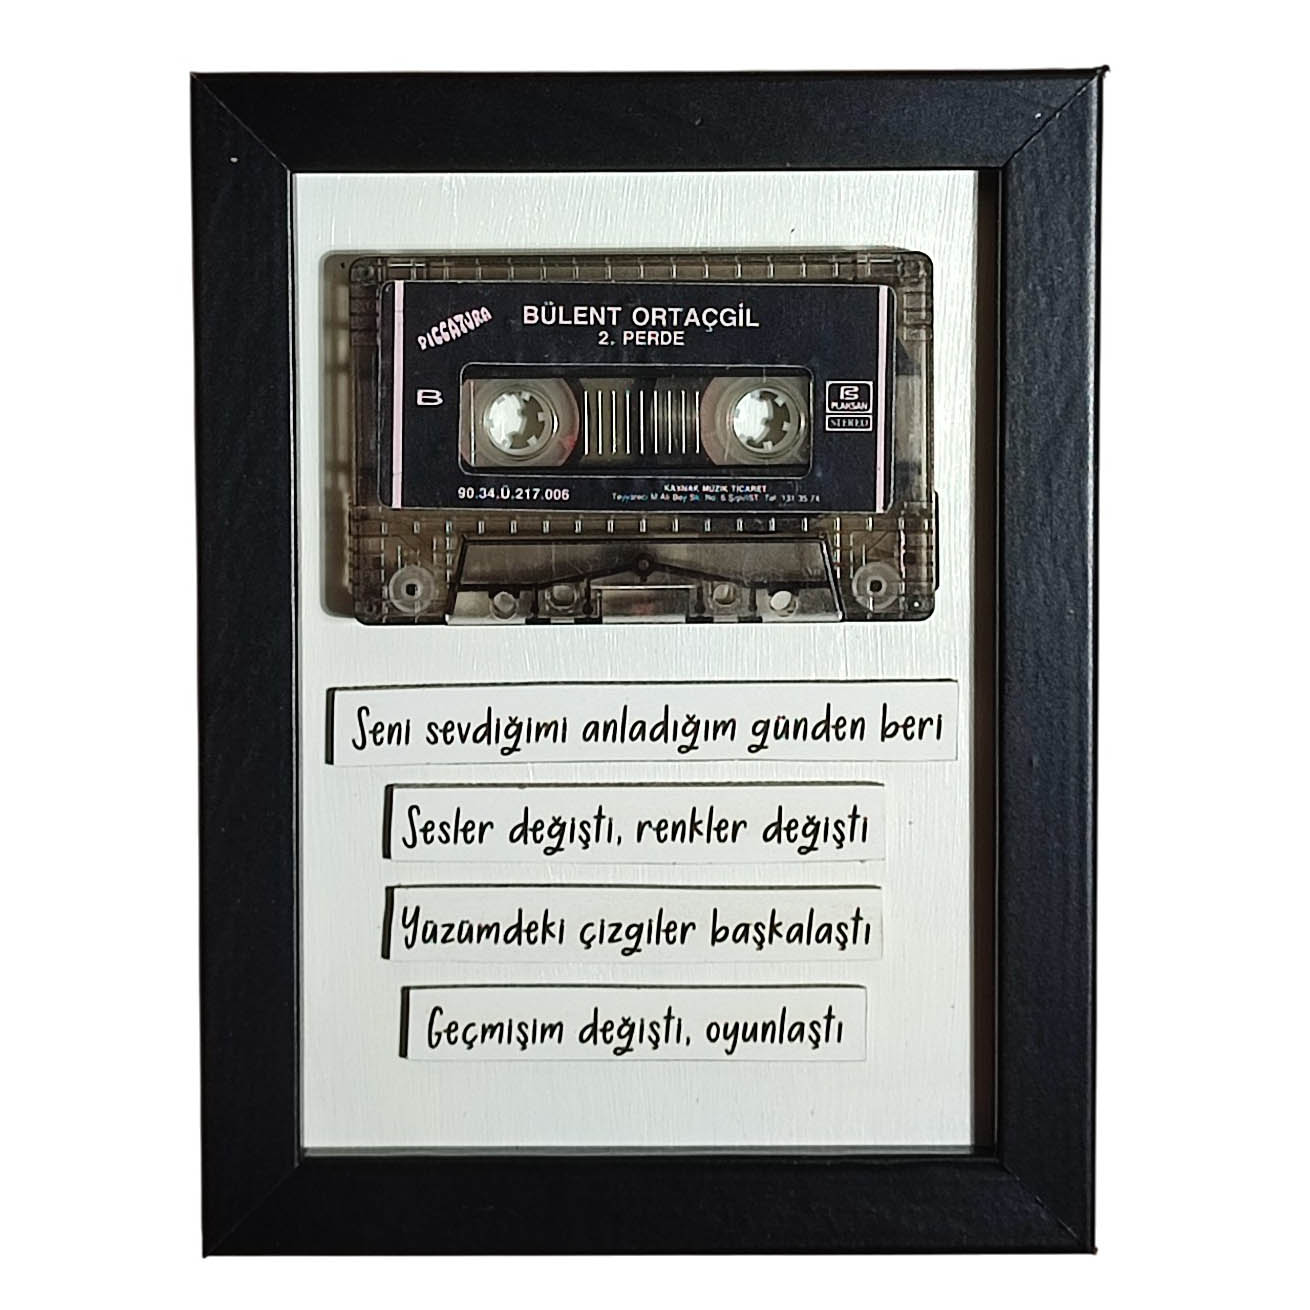 PICCATURA
BÜLENT ORTAÇGİL
2. PERDE
B
PLAKSAN
STEREO
90.34.Ü.217.006
KAYNAK MÜZİK TİCARET
Tayyareci M Ali Bey Sk. No. 6 Şişli/IST Tel 131 35 74
Seni sevdiğimi anladığım günden beri
Sesler değişti, renkler değişti
Yüzümdeki çizgiler başkalaştı
Geçmişim değişti, oyunlaştı